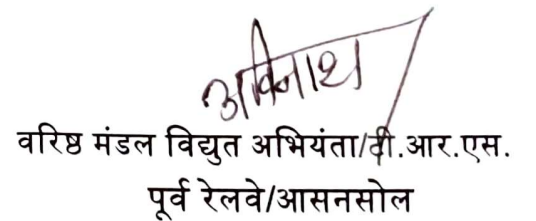 अविनाश
वरिष्ठ मंडल विद्युत अभियंता/टी.आर.एस.
पूर्व रेलवे/आसनसोल